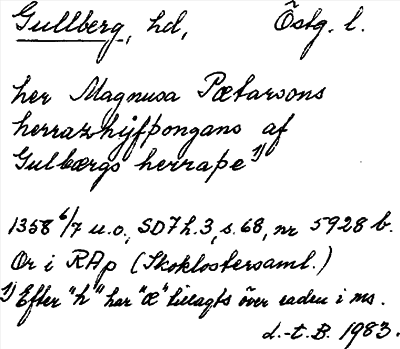 Gullberg, hd, Östg. l.
her Magnusa Pætarsons
herrazhijfþongans af
Gulbærgs herraþe¹⁾
1358 6/7 u.o., SD7 h.3, s.68, nr 5928 b.
Or i RAp (Skoklostersaml.)
1) Efter "h" har "æ" tillagts över raden i ms.
d.-t. B. 1983.